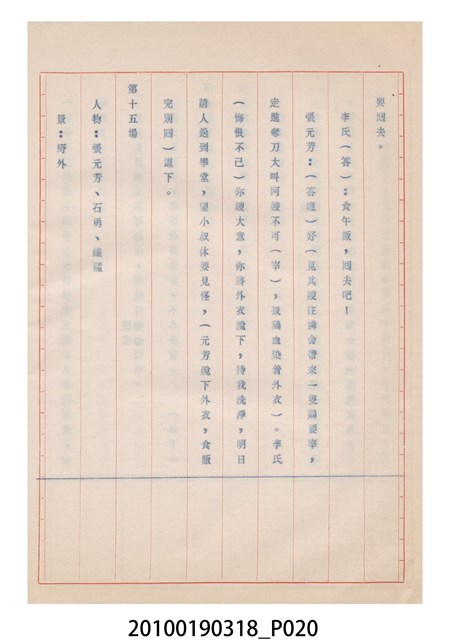 要回去。
李氏(答):食午飯,回去吧!
張元芳:(答應)好(見其嫂往講舍帶來一隻鷄要宰,
走進奪刀大叫阿嫂不可(宰),被鷄血染着外衣)。李氏
(悔恨不已)你嫂大意,你將外衣脫下,待我洗淨,明日
請人送到學堂,望小叔休要見怪,(元芳脫下外衣,食飯
完別回)這下。
第十五場
人物:張元芳、石勇、鐵猛
景:野外
20100190318_P020